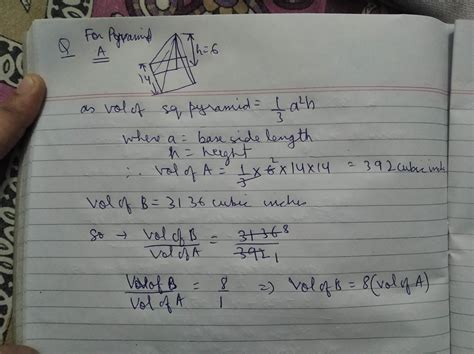 Q For Pyramid
A
h=6
14
as vol of sq pyramid = 1/3 a²h
where a = base side length
h = height
∴ vol of A = 1/3 × 6² × 14 × 14 = 392 cubic inch
Vol of B = 3136 cubic inches
So → Vol of B / Vol of A = 3136 8 / 392 1
Vol of B / Vol of A = 8/1 ⇒ Vol of B = 8(Vol of A)